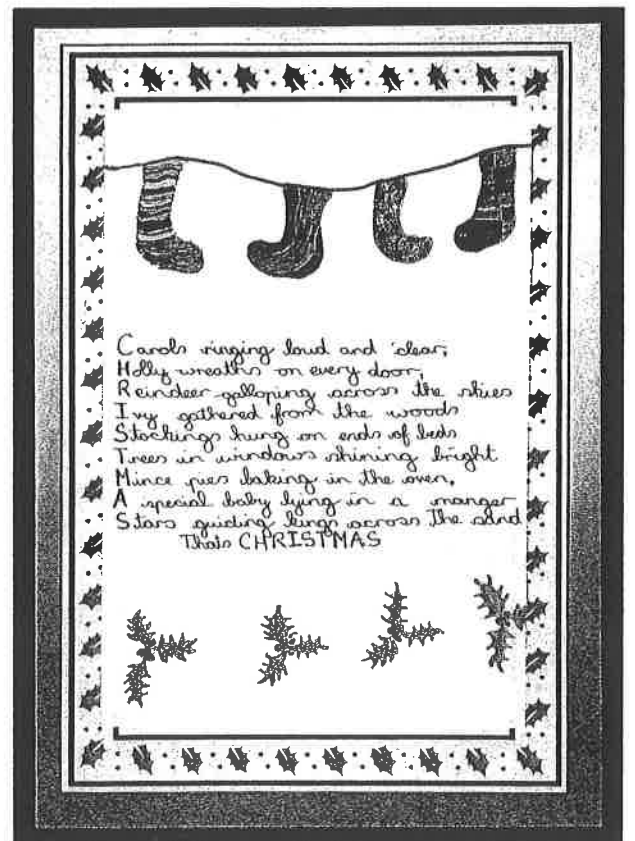 Carols ringing loud and clear,
Holly wreaths on every door,
Reindeer galloping across the skies
Ivy gathered from the woods
Stockings hung on ends of beds
Trees in windows shining bright
Mince pies baking in the oven,
A special baby lying in a manger
Stars guiding kings across the sand
Thats CHRISTMAS